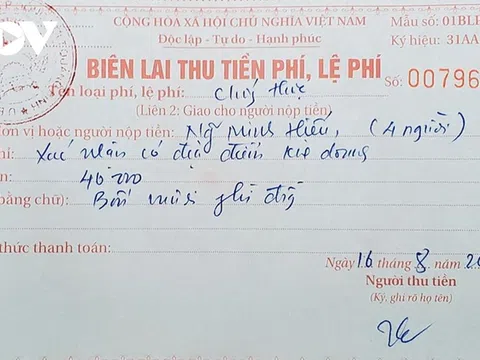 VOV
CỘNG HÒA XÃ HỘI CHỦ NGHĨA VIỆT NAM
Mẫu số: 01BL
Độc lập - Tự do - Hạnh phúc
Ký hiệu: 31AA
BIÊN LAI THU TIỀN PHÍ, LỆ PHÍ
Số: 00796
Tên loại phí, lệ phí: Chứng thực
(Liên 2: Giao cho người nộp tiền)
ơn vị hoặc người nộp tiền: Minh Hiếu, (4 người)
hỉ: Xác nhận có đủ điều kiện
ền: 40 000
bằng chữ): Bốn mươi ghì đồng
thức thanh toán:
Ngày 16 tháng 8 năm 20
Người thu tiền
(Ký, ghi rõ họ tên)